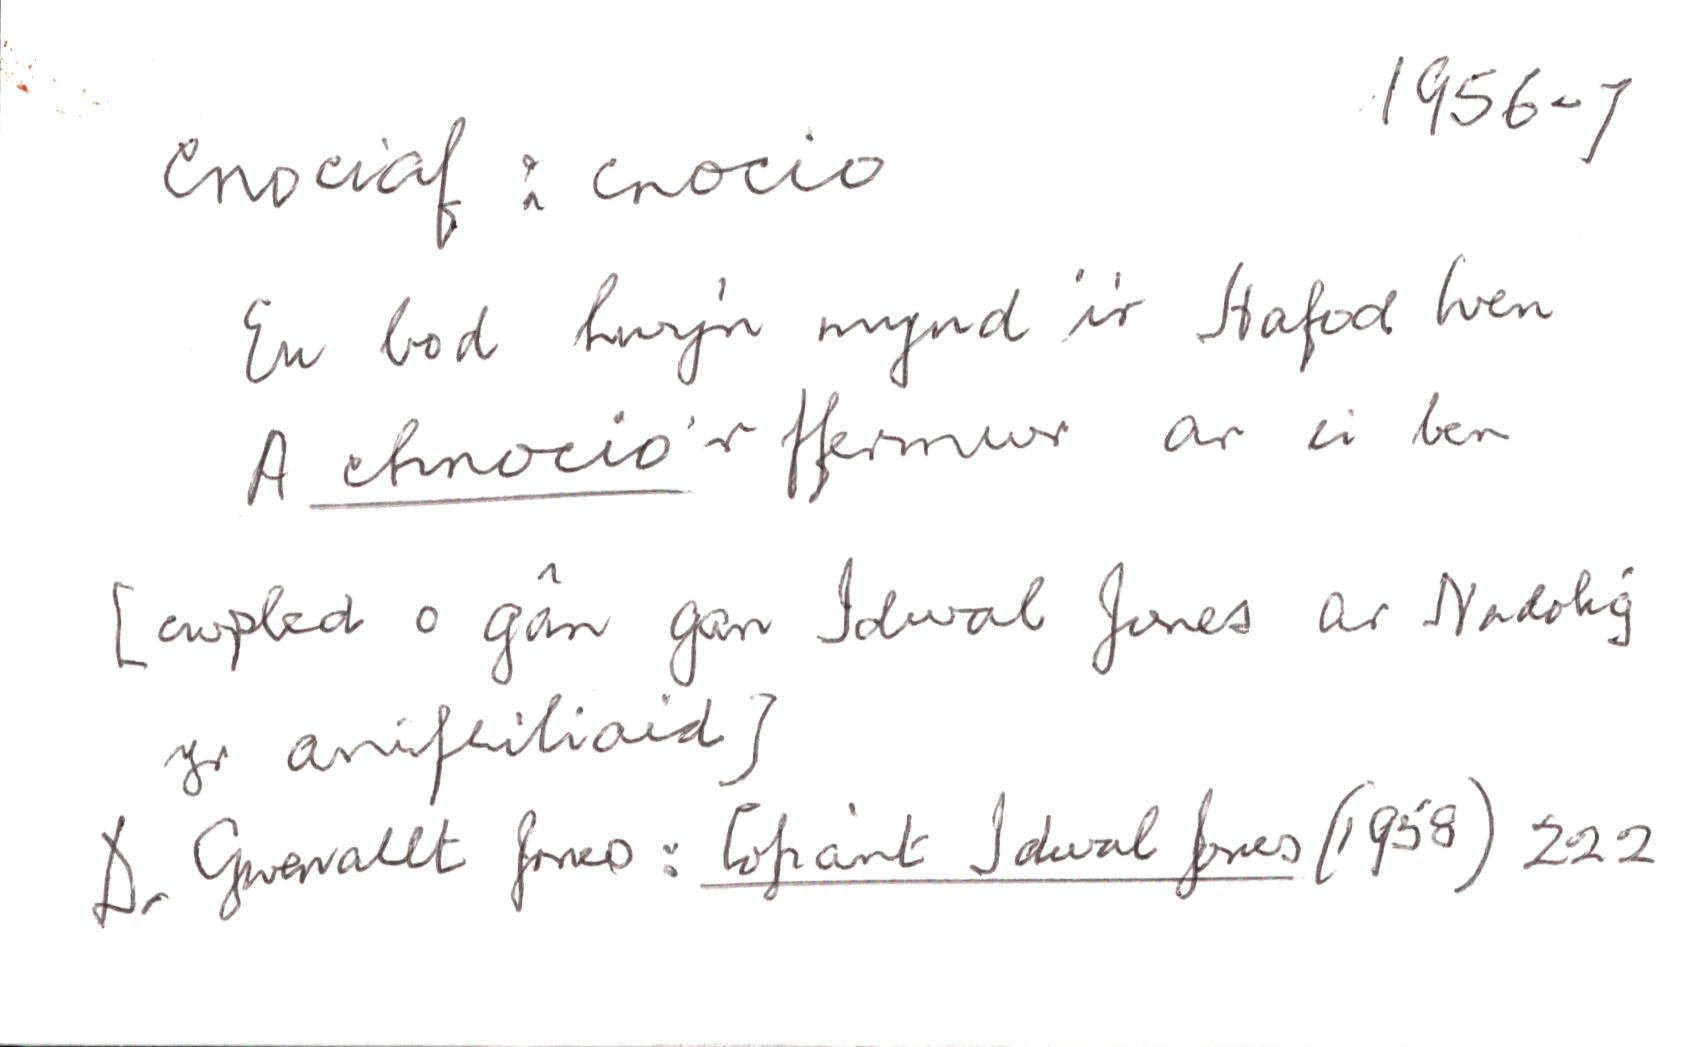 1956-7
cnociaf : cnocio
Eu bod hwy'n mynd i'r Stafod hen
A chnocio'r ffermwr ar ei ben
[cwpled o gân gan Idwal Jones ar Nadolig
yr anifeiliaid]
D. Gwenallt Jones : Cofiant Idwal Jones (1958) 222